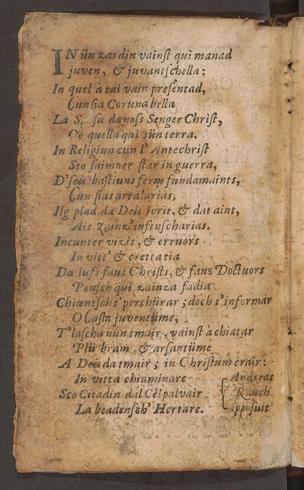 IN ün zardin vainst qui manad
juven, & juvantschella:
In quel a tai vain presentad,
Cun sia Coruna bella
La S. da noss Senger Christ,
Cō quella qui sün terra.
In Religiun cun l' Antechrist
Sto saimper star in guerra,
D' seu bastiuns ferm fundamaints,
Cun sias artalarias,
Ilg plad da Deis scrit, & dat aint,
Ais zainz' infinscharias.
Incunter vizis, & erruors
In vitt' & crettatia
Da lufs faus Christs, & faus Doctuors
Pousch qui zainza fadia
Chiœntscht' perchürar; doch t' informar
O Casta juventüme,
T' lascha nūn tmair, vainst a chiatar
Plü bram, & arsantüme
A Deis da tmair; in Christum crair:
In vitta chiaminare
Andreas
Sco Citadin dal Cēl palvair
Rauch
La beadensch' Hertare.
apposuit